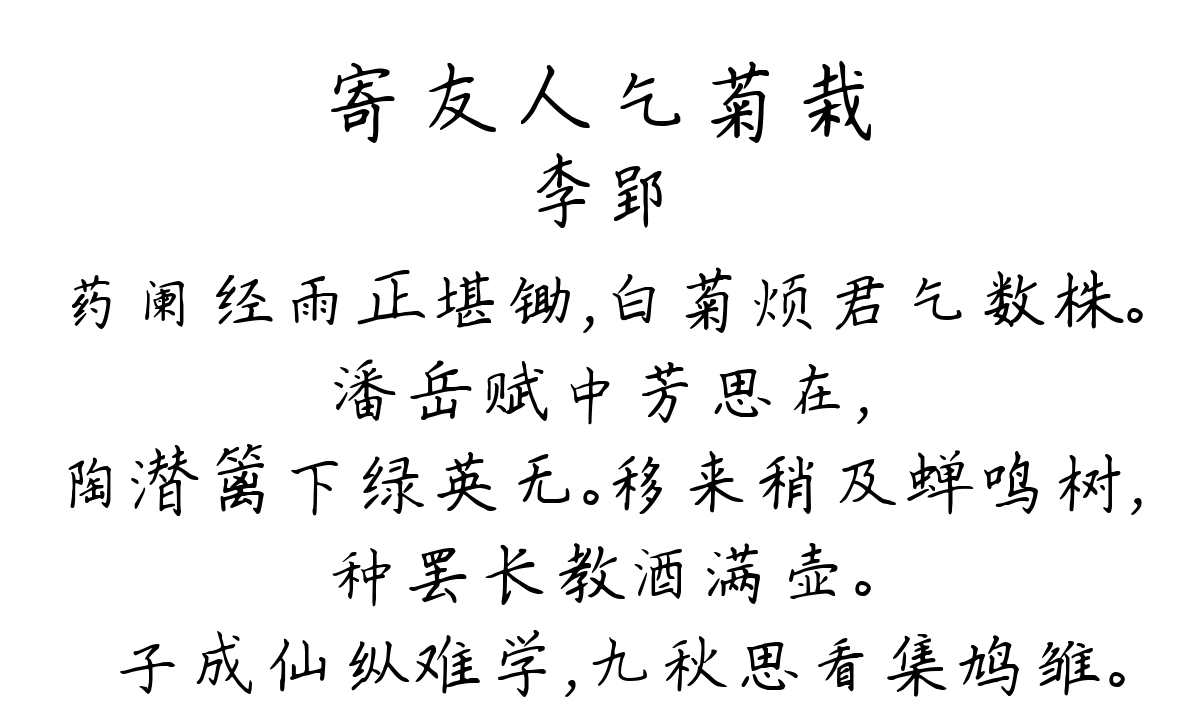 寄友人乞菊栽
李郢
药阑经雨正堪锄,白菊烦君乞数株。
潘岳赋中芳思在,
陶潜篱下绿英无。移来稍及蝉鸣树,
种罢长教酒满壶。
子成仙纵难学,九秋思看集鸠雏。